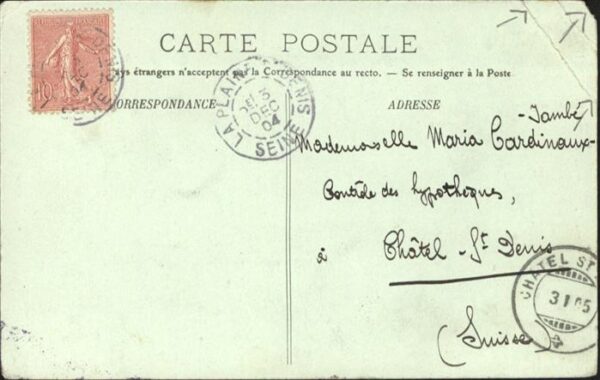 10
CARTE POSTALE
ys étrangers n'acceptent pas la Correspondance au recto. — Se renseigner à la Poste
CORRESPONDANCE
ADRESSE
LA PLAINE ST DENIS
3
DEC
04
SEINE
Mademoiselle Maria Cardinaux-
Jambé
Contrôle des hypothèques,
à Châtel-St Denis
(Suisse)
CHATEL ST